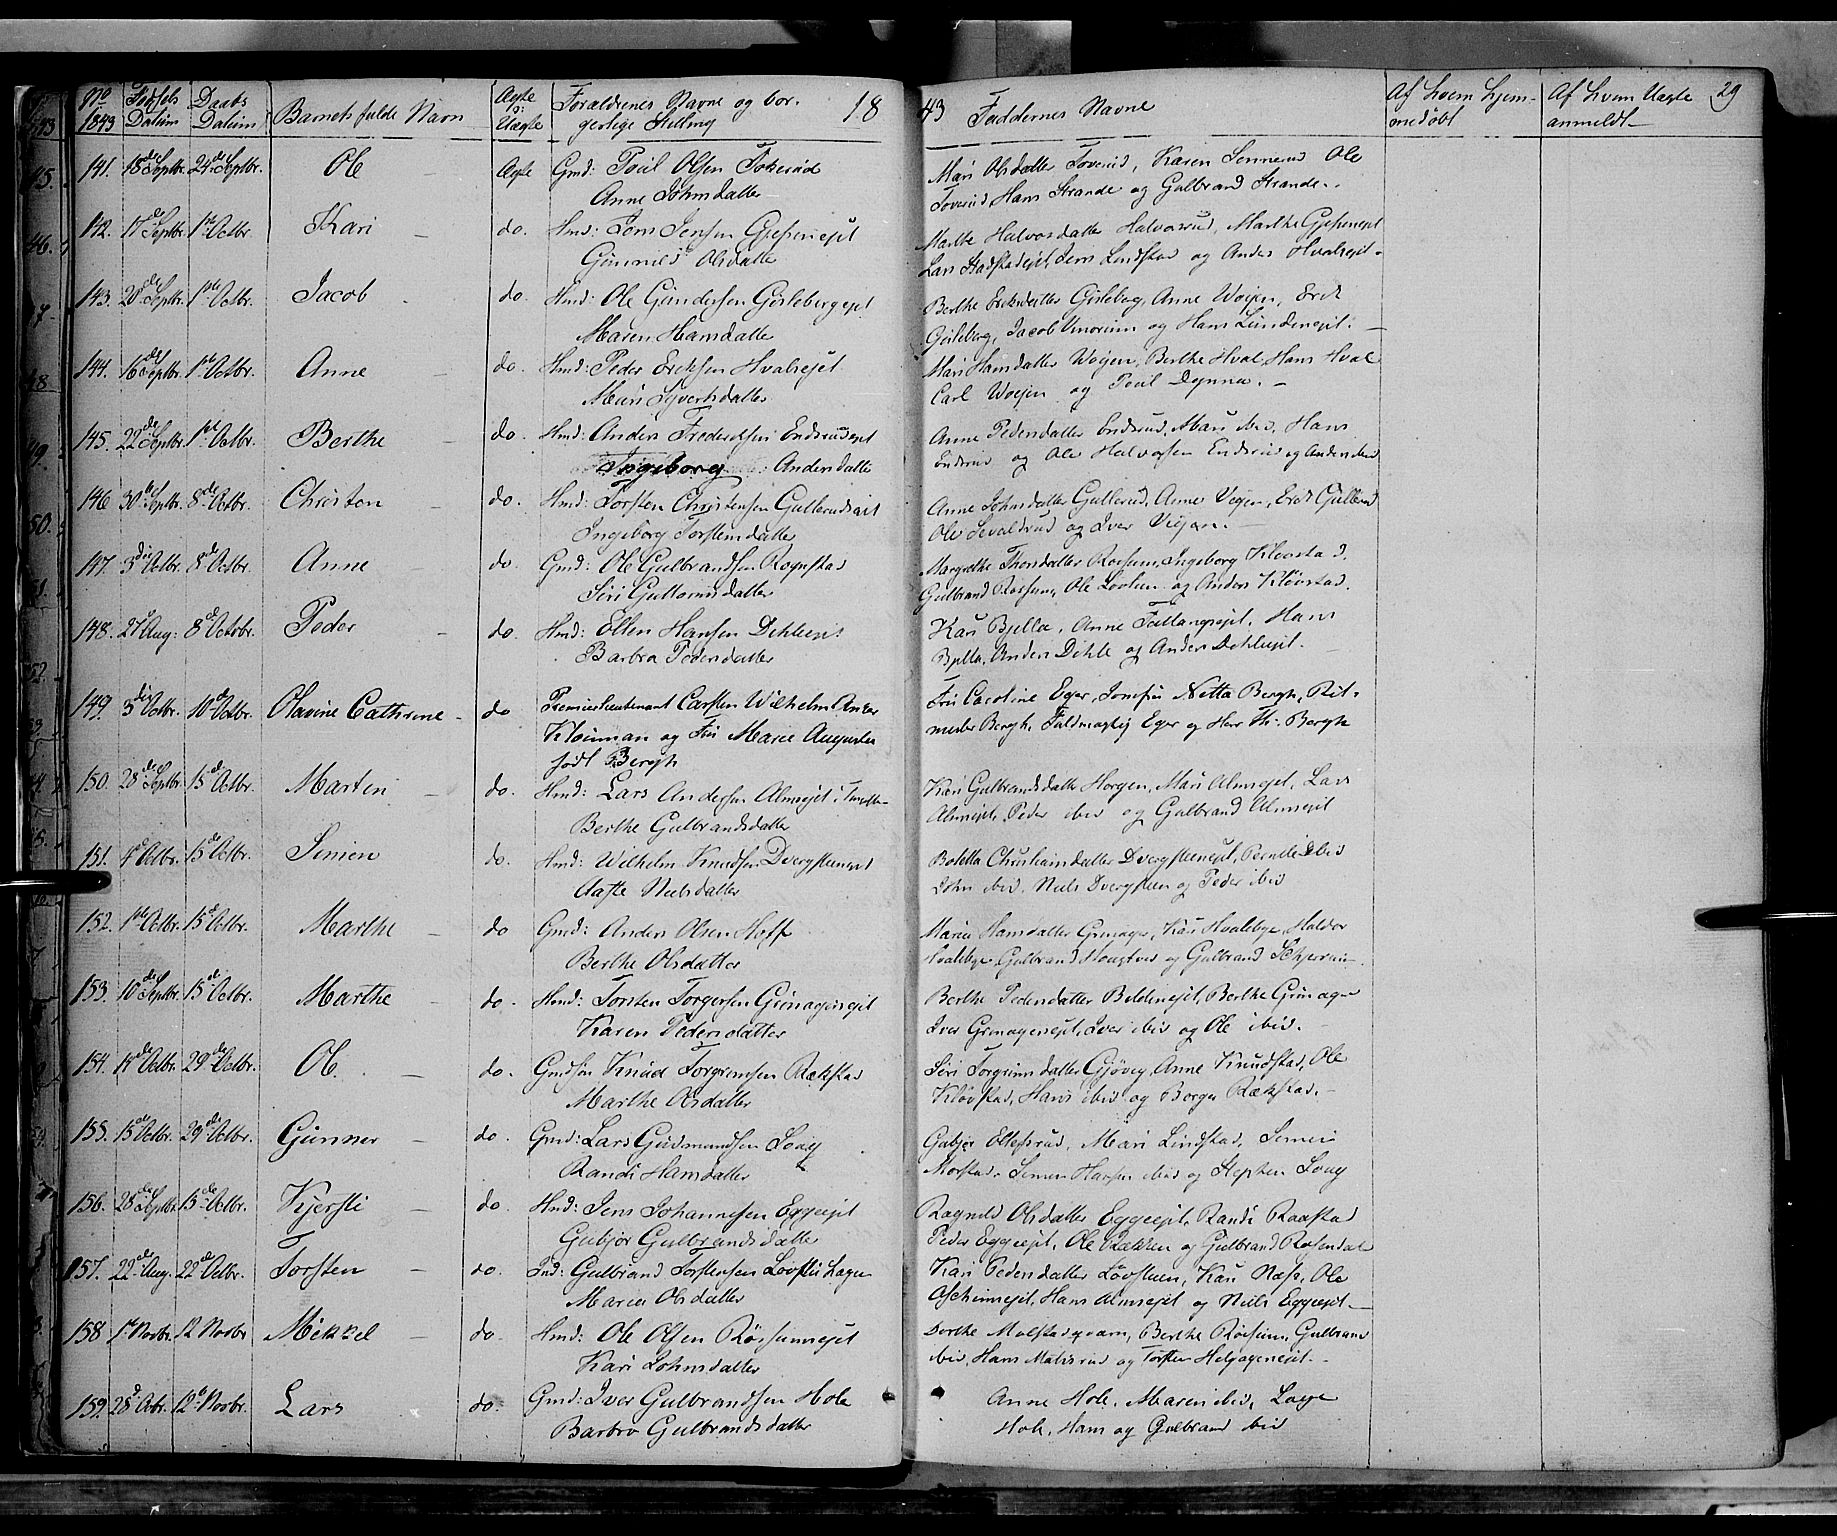 No 1843 Fødsels Datum Daabs Datum Barnets fulde Navn Ægte o: Uægte Forældrenes Navne og borgerlige Stilling 18
43 Faddernes Navne Af hvem hjemmedøbt Af hvem Uægte anmeldt 29
141. 18de Septbr. 24de Septbr. Ole Ægte Gmd: Poul Olsen
Anne Johnsdatter
Mari Olsdatter Toverud, Karen Ole
Toverud Hans Strande og Gulbrand Strande.
142. 17de Septbr. 1ste Octbr. Kari do. Hmd: Jens Jensen
Gunnild Olsdatter
Marthe Halvorsdatter Halvorsrud, Marthe
Lars Jens Lindstad og Anders Hvalsejet
143. 20de Septbr. 1ste Octbr. Jacob do. Hmd: Ole Gundersen Gislebergejet
Maren Hansdatter
Berthe Ericksdatter Gisleberg, Anne Woyen, Erik
Gisleberg, Jacob og Hans Lundenejet.
144. 16de Septbr. 1ste Octbr. Anne do. Hmd: Peder Ericksen Hvalsejet
Mari Syvertsdatter
Mari Hansdatter Woyen, Berthe Hval, Hans Hval
Carl Woyen og Poul Dynna.
145. 22de Septbr. 1ste Octbr. Berthe do. Hmd: Anders Fredericksen Endrudejet
Ingeborg Andersdatter
Anne Pedersdatter Endrud, Mari ibid, Hans
Endrud og Ole Halvorsen Endrud og Anders ibid
146 30te Septbr. 8de Octbr. Christen do. Hmd: Torsten Christensen Gullerudejet
Ingeborg Torstensdatter
Anne Johnsdatter Gullerud, Anne Erik Gullerud
Ole Sevaldrud og Iver
147. 3die Octbr. 8de Octbr. Anne do. Gmd: Ole Gulbrandsen Rognstad
Siri Guttormsdatter
Margrethe Thorsdatter Ingeborg Kløvstad,
Gulbrand Ole og Anders Kløvstad.
148. 27 Aug: 8de Octobr. Peder do. Hmd: Ellen Hansen
Barbro Pedersdatter
Kari Bjella, Anne Hans
Bjella, Anders Dehle og Anders
149. 3die Octbr. 10de Octbr. Olavine Cathrine do Premierlieutenant Carsten Wilhelm Anker
og Fru Marie Augusta
født Bergh
Fru Caroline Eger, Jomfru Netta Bergh, Rit-
mester Bergh, Fuldmægtig Eger og Herr Th: Bergh
150. 28de Septbr. 15de Octbr. Marten do. Hmd: Lars Andersen Almsejet i
Berthe Gulbrandsdatter
Kari Gulbrandsdatter Horgen, Mari Almsejet, Lars
Almsejet, Peder ibid og Gulbrand Almsejet
151. 4de Octbr. 15de Octbr. Simen do. Hmd: Wilhelm Knudsen Dvergsteenejet
Nielsdatter
Bolette Christiansdatter Dvergsteenejet, Pernille ibid
John ibid, Niels Dvergsteen og Peder ibid
152. 1ste Octbr. 15de Octbr. Marthe do Gmd: Anders Olsen Hoff
Berthe Olsdatter
Marie Hansdatter Grinager, Kari Hvalebye, Haldor
Hvalebye, Gulbrand og Gulbrand
153. 10de Septbr. 15de Octbr. Marthe do. Hmd: Torsten Torgersen Grinagersejet
Karen Pedersdatter
Berthe Pedersdatter Berthe Grinager
Iver Grinagersejet, Iver ibid og Ole ibid.
154. 14de Octbr. 29de Octbr. Ole do. Gmdsøn Knud Torgrimsen Rækstad
Marthe Olsdatter
Siri Torgrimsdatter Gjøvig, Anne Knudstad, Ole
Kløvstad, Hans ibid og Borger Rækstad.
155. 15de Octbr. 29de Octbr. Gunner do. Gmd: Lars Gudmundsen
Randi Hansdatter
Gubjør Mari Lindstad, Simen
Morstad, Simen Hansen ibid og Stephen
156. 28de Septbr. 15de Octbr. Kjersti do. Hmd: Jens Johannesen Eggeejet
Gubjør Gulbrandsdatter
Ragnild Olsdatter Eggeejet, Randi Raastad
Peder Eggeejet, Ole Rækken og Gulbrand Rosendal
157. 22de Aug. 22de Octbr. Torsten do. Ind: Gulbrand Torstensen
Marie Olsdatter
Kari Pedersdatter Kari Næs, Ole
Hans Almsejet og Niels Eggeejet
158 1ste Novbr. 12 Novbr Mikkel do. Hmd: Ole Olsen Røisumsejet
Kari Johnsdatter
Dorthe Molstadqvern, Berthe Røisum, Gulbrand
ibid, Hans og Torsten Helgagersejet.
159. 28de Octbr. 12te Novbr. Lars do. Gmd: Iver Gulbrandsen Hole
Barbro Gulbrandsdatter
Anne Hole, Maren ibid, Lage
Hole, Hans og Gulbrand ibid